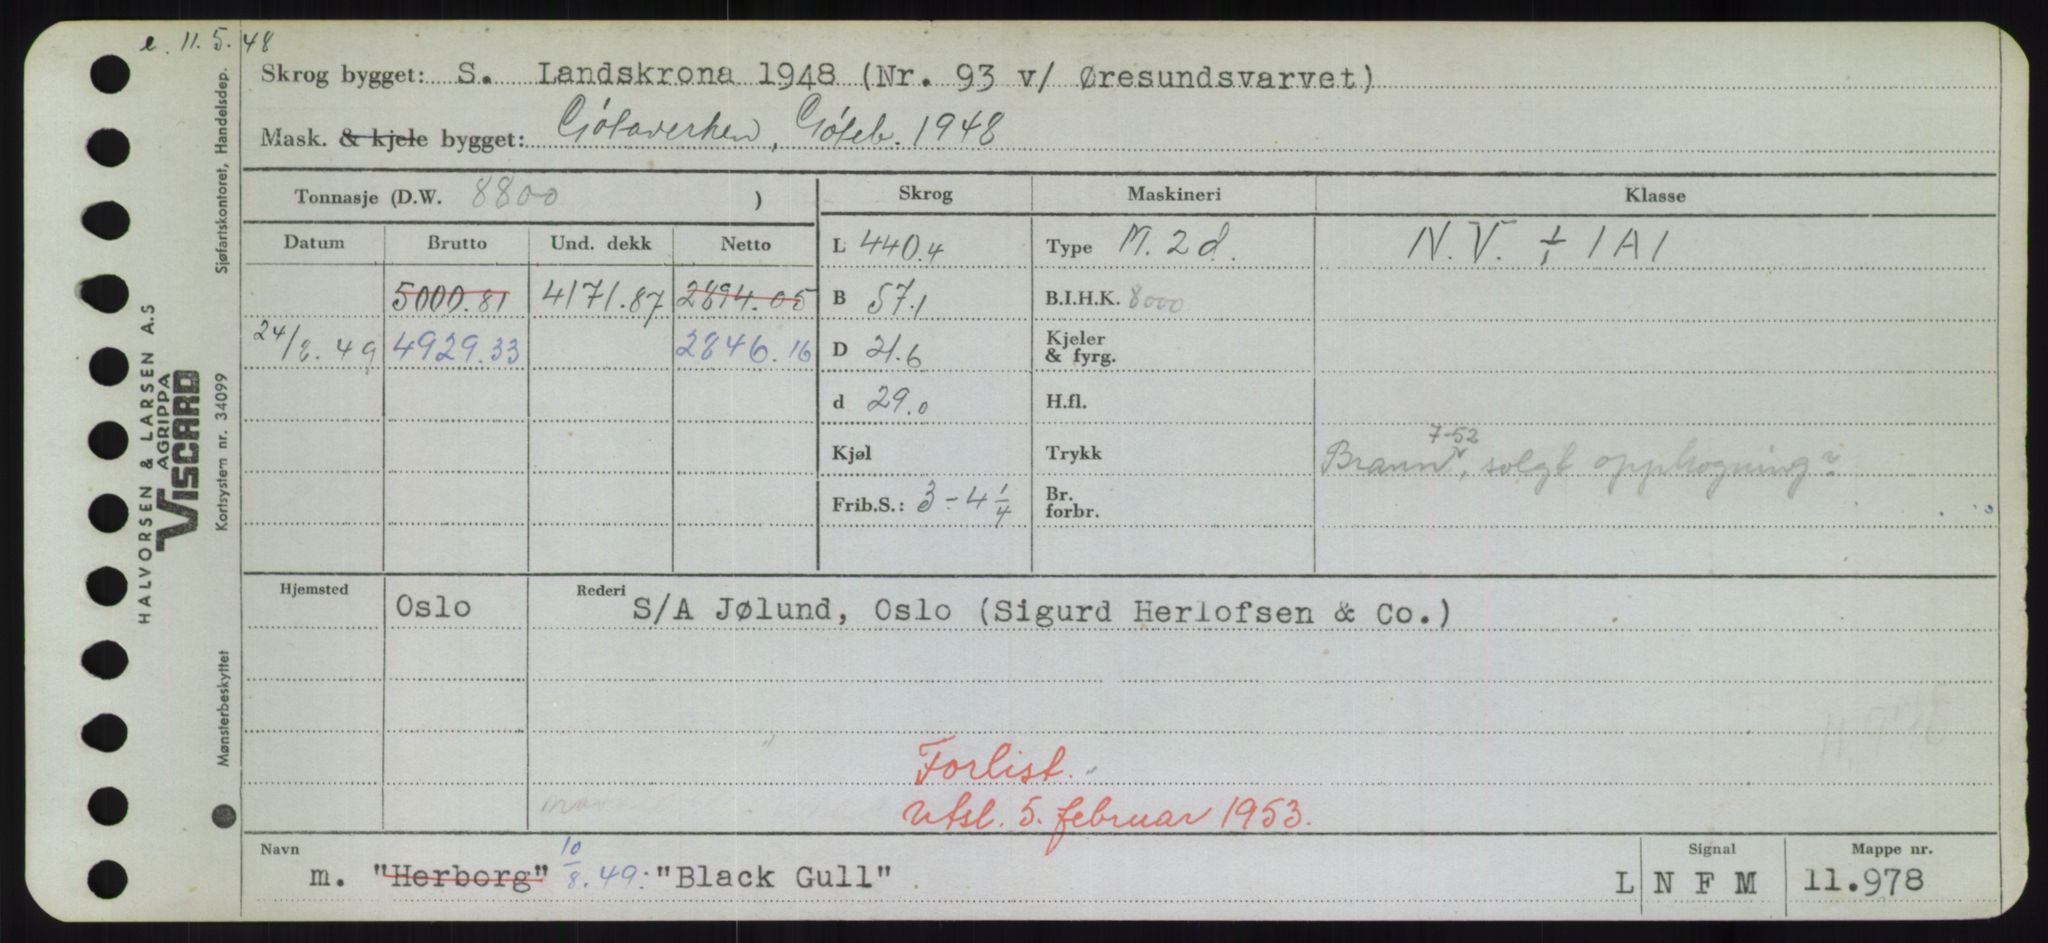 e. 11.5.48
Skrog bygget: S. Landskrona 1948 (Nr. 93 v/ Øresundsvarvet)
Mask. & kjele bygget: Götaverken, Göteb. 1948
Tonnasje (D.W. 8800 )
Skrog Maskineri Klasse
Datum Brutto Und. dekk Netto
L 440.4 Type M. 2 d. N.V. + 1A1
5000.81 4171.87 2894.05 B 57.1 B.I.H.K. 8000
24/8.49 4929.33 2846.16 D 21.6 Kjeler & fyrg.
d 29.0 H.fl.
Kjøl Trykk Brann 7-52, solgt opphogning?
Frib.S.: 3-4 1/4 Br. forbr.
Hjemsted Oslo Rederi S/A Jølund, Oslo (Sigurd Herlofsen & Co.)
Forlist.
Utsl. 5. februar 1953.
Navn Signal Mappe nr.
m. "Herborg" 10/8.49: "Black Gull" L N F M 11.978
HALVORSEN & LARSEN A.S
AGRIPPA
VISCARD
Mønsterbeskyttet Kortsystem nr. 34099 Sjøfartskontoret, Handelsdep.